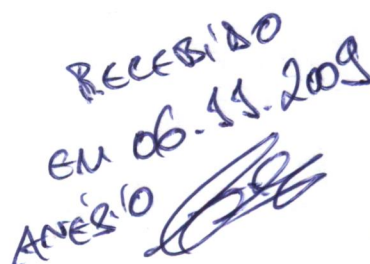 RECEBIDO
EM 06.11.2009
ANÉSIO